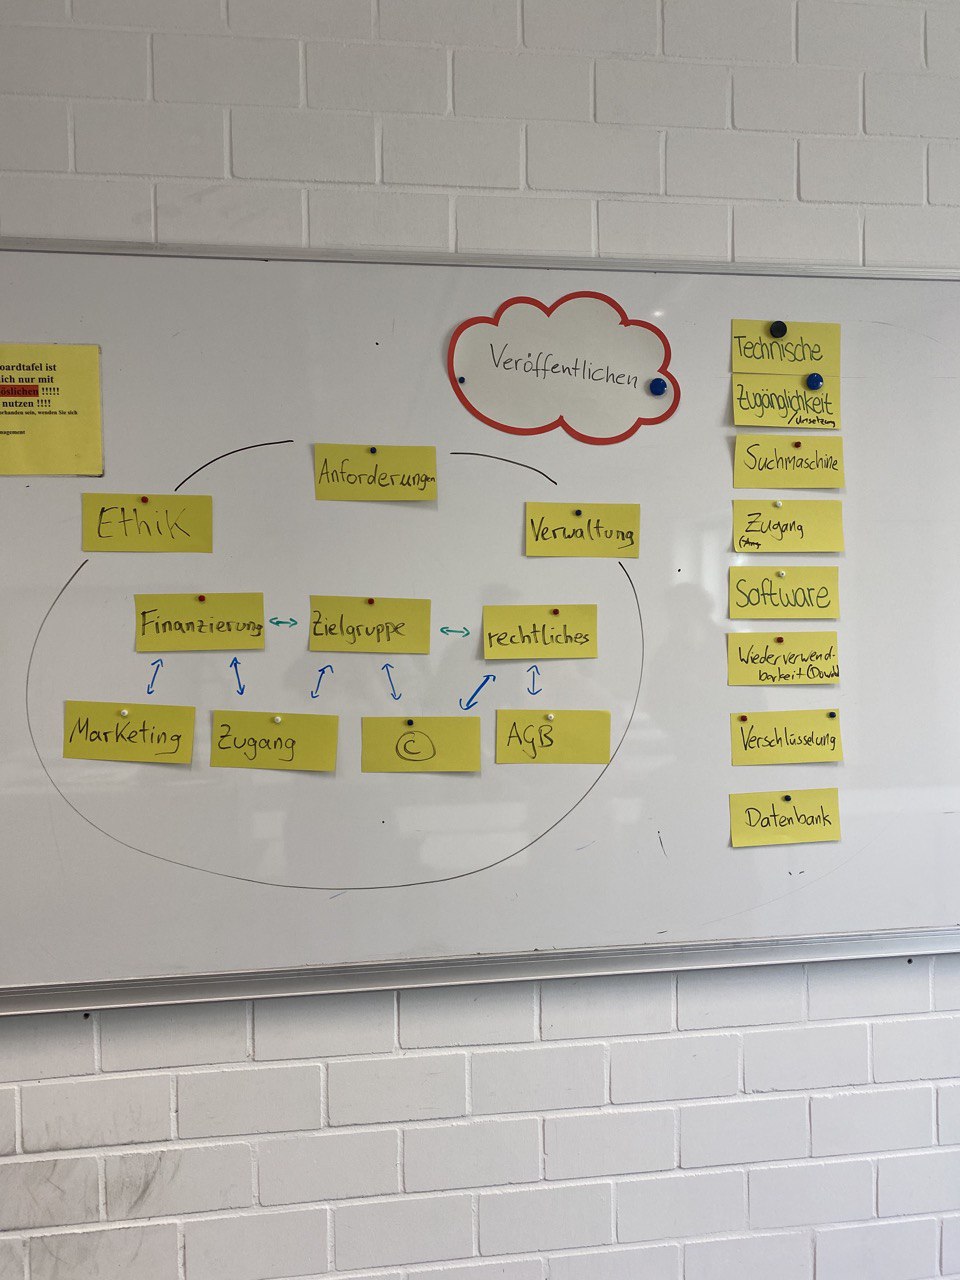 oardtafel ist
lich nur mit
öslichen !!!!!
nutzen !!!!
erhanden sein, wenden Sie sich
nagement
Veröffentlichen
Anforderungen
Ethik
Verwaltung
Finanzierung
Zielgruppe
rechtliches
Marketing
Zugang
©
AGB
Technische
Zugänglichkeit
/Umsetzung
Suchmaschine
Zugang
Software
Wiederverwend-
barkeit
Verschlüsselung
Datenbank